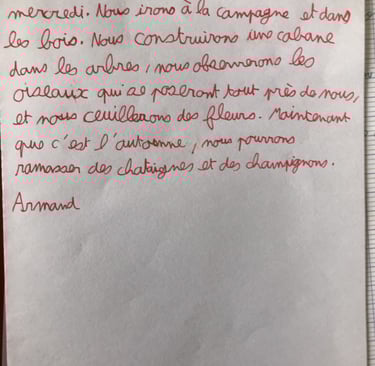 mercredi. Nous irons à la campagne et dans
les bois. Nous construirons une cabane
dans les arbres, nous observerons les
oiseaux qui se poseront tout près de nous,
et nous ceuillerons des fleurs. Maintenant
que c'est l'automne, nous pourrons
ramasser des chataignes et des champignons.
Armand